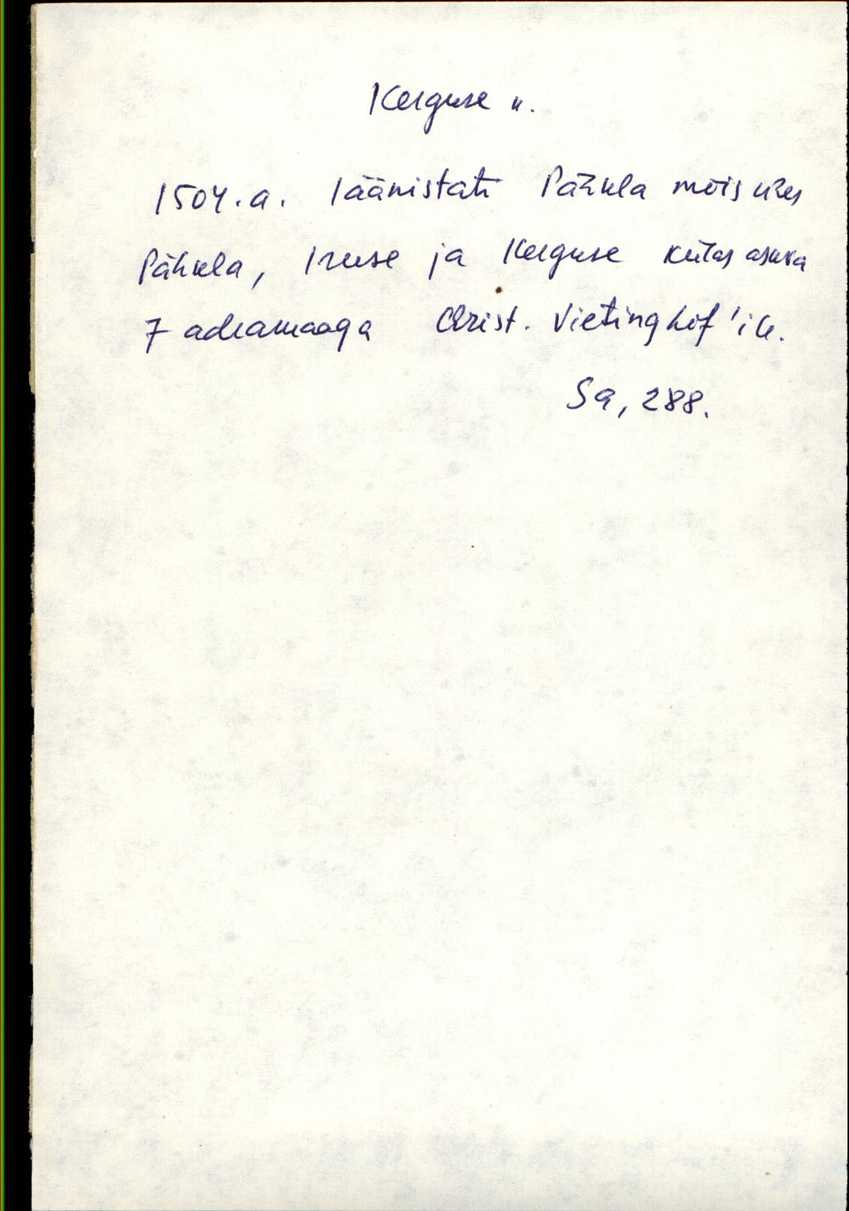 Kerguse k.
1504.a. läänistati Pähkla mõis ühes
Pähkla, Iruse ja Kerguse külas asuva
7 adramaaga Christ. Vietinghof'ile.
Sa, 288.